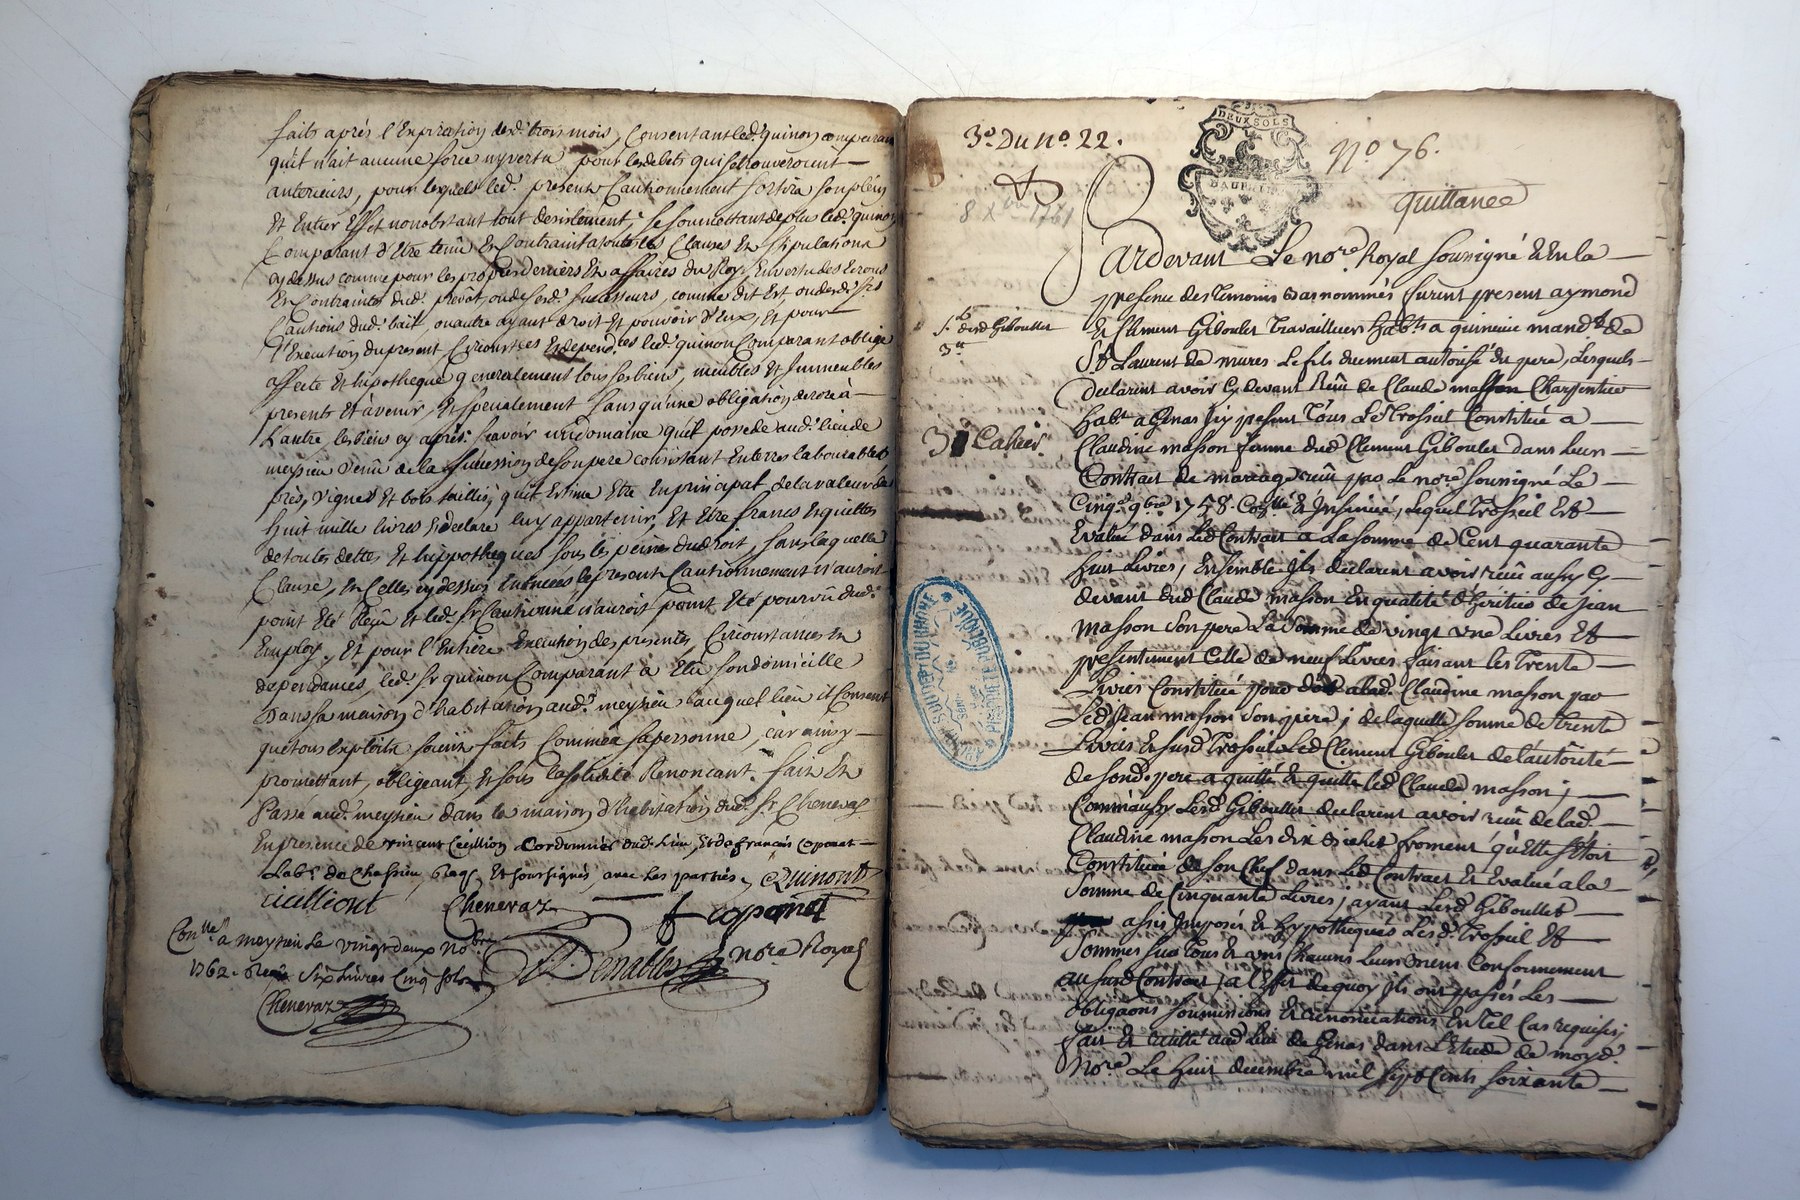 faits après l'Expiration desd. trois mois, Consentant led. quinon comparant
qu'il n'ait aucune force ny vertu pour les debets qui se trouveroient
anterieurs, pour lesquels led. present Cautionnement sortira son plein
Et Entier Effet nonobstant tout desistement, se soumettant de plus led. quinon
Comparant d'Etre tenu Et Contraint a toutes les Clauses Et stipulations
cy dessus comme pour les propres deniers Et affaires du Roy, En vertu des
Et Contraintes dud. ou de ses successeurs, comme dit Est ou desd. srs
Cautions dud. bail, ou autre ayant droit Et pouvoir d'Eux, Et pour
l'Execution du present Circonstces Et depend.ces led. quinon Comparant oblige
affecte Et hipotheque generalement tous ses biens, meubles Et Immeubles
presents Et à venir, Et specialement sans qu'une obligation deroge à
L'autre les biens cy après: scavoir un domaine qu'il possede aud. lieu de
meysieu venu de la succession de son pere consistant En terres labourables
près, vignes Et bois taillis, qu'il Estime Etre En principal de la valeur de
huit mille livres Et declare luy appartenir, Et Etre francs Et quittes
de toutes dettes Et hippotheques sous les peines du droit, sans laquelle
Clause, Et Celles cy dessus Enoncées le present Cautionnement n'auroit
point Eté Reçu Et led. sr Cautionné n'auroit point Eté pourvû dud.
Employ, Et pour l'Entiere Execution des presentes Circonstances Et
dependances, led. sr quinon Comparant à Elu son domicille
Dans sa maison d'habitation aud. meysieu auquel lieu il Consent
que tous exploits soient faits Comme a sa personne, car ainsy
promettant, obligeant, Et sous la solidité Renoncant. fait Et
Passé aud. meysieu dans la maison d'habitation dud. sr Chenevaz
En presence de vincent Cicillion Cordonnier dud. Lieu, Et de françois coponat
Lab.r de Chassieu, req. Et soussignés, avec les parties. Quinont
cicilliont Chenevaz f coponat
Con.llé a meysieu Le vingt deux No.bre
1762. Reçu six Livres Cinq sols
Chenevaz
Denablos nore Royal
3.o Du n.o 22.
N.o 76.
DEUX SOLS
DAUPHINE
8 Xbre 1761
quittance
Pardevant Le nore. Royal soussigné & En la
presence des temoins bas nommés furent present aymond
Et Clement Giboulet Travailleurs hab.ts a quincieu mand.t de
St. Laurent de mures Le fils duement autorisé du pere, Lesquels
declarent avoir Cy devant Reçu de Claude masson Charpentier
hab.t a Genas icy present Tous Le Trosseil Constitué a
Claudine masson femme dud Clement Giboulet dans Leur
Contrat de mariage reçu par Le nore. soussigné Le
Cinq. 9bre 1758. Con.llé & Insinué, Lequel Trosseil Est
Evalué dans Led Contrat a La somme de Cent quarante
huit Livres, Ensemble Ils declarent avoir reçu aussy Cy
devant dud Claude masson En qualité d'heritier de Jean
masson son pere La somme de vingt une Livres Et
presentement Celle de neuf Livres faisant les Trente
Livres Constituée pour dot a lad. Claudine masson par
Led Jean masson son pere; de laquelle somme de Trente
Livres & susd Trosseil Led Clement Giboulet de l'autorité
de sond. pere a quitté & quitte led Claude masson;
Comm'aussy Lesd Giboullet declarent avoir reçu de lad.
Claudine masson Les dix bichets froment qu'elle s'etoit
Constituée de son Chef dans Led Contrat Et Evalué a la
somme de Cinquante Livres; ayant Lesd Giboullet
assis Imposés & hypothequés Lesd. Trosseil Et
sommes sur tous & uns Chacuns Leurs biens Conformement
au susd Contrat; a l'Effet de quoy Ils ont passés Les
obligaons soumissions & renonciations En tel Cas requises;
fait & recitté aud Lieu de Genas dans L'Etude de moyd.
Nore. Le huit decembre mil sept Cents soixante
desd Giboullet
3 Cahier.